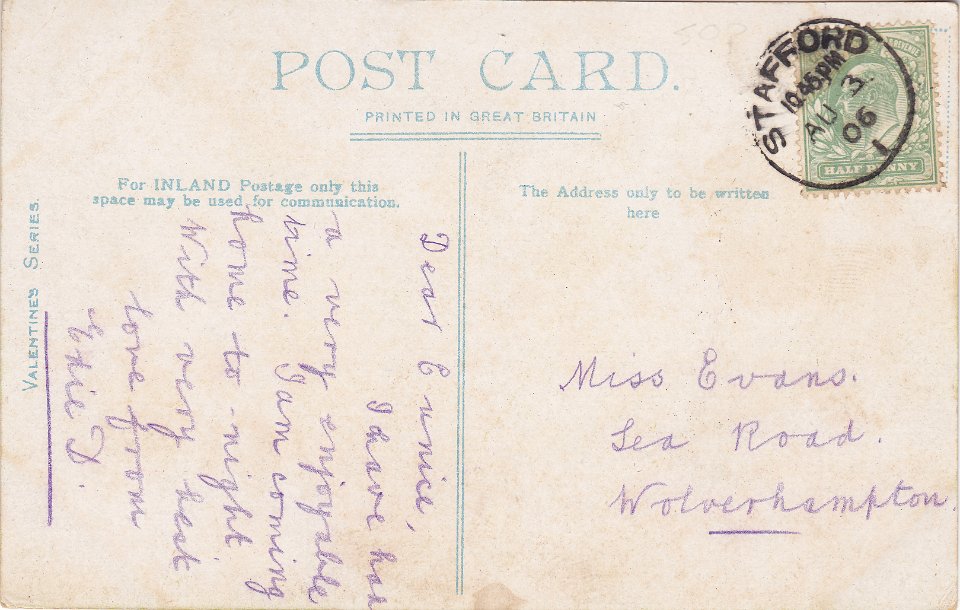 POST CARD.
PRINTED IN GREAT BRITAIN
For INLAND Postage only this
space may be used for communication.
The Address only to be written
here
VALENTINE'S SERIES.
STAFFORD
10.45 PM
AU 3
06
1
HALFPENNY
Dear Eunice,
I have had
a very enjoyable
time. I am coming
home to-night
With very best
love from
Edie D.
Miss Evans.
Lea Road.
Wolverhampton.